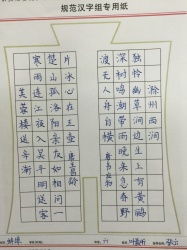 规范汉字组专用纸
滁州西涧
独怜幽草涧边生上有黄鹂
深树鸣潮带雨晚来急春野
波无人舟自横
片冰心在玉壶
楚山孤洛阳亲友如相问一
寒雨连江夜入吴平明送客
芙蓉楼送辛渐